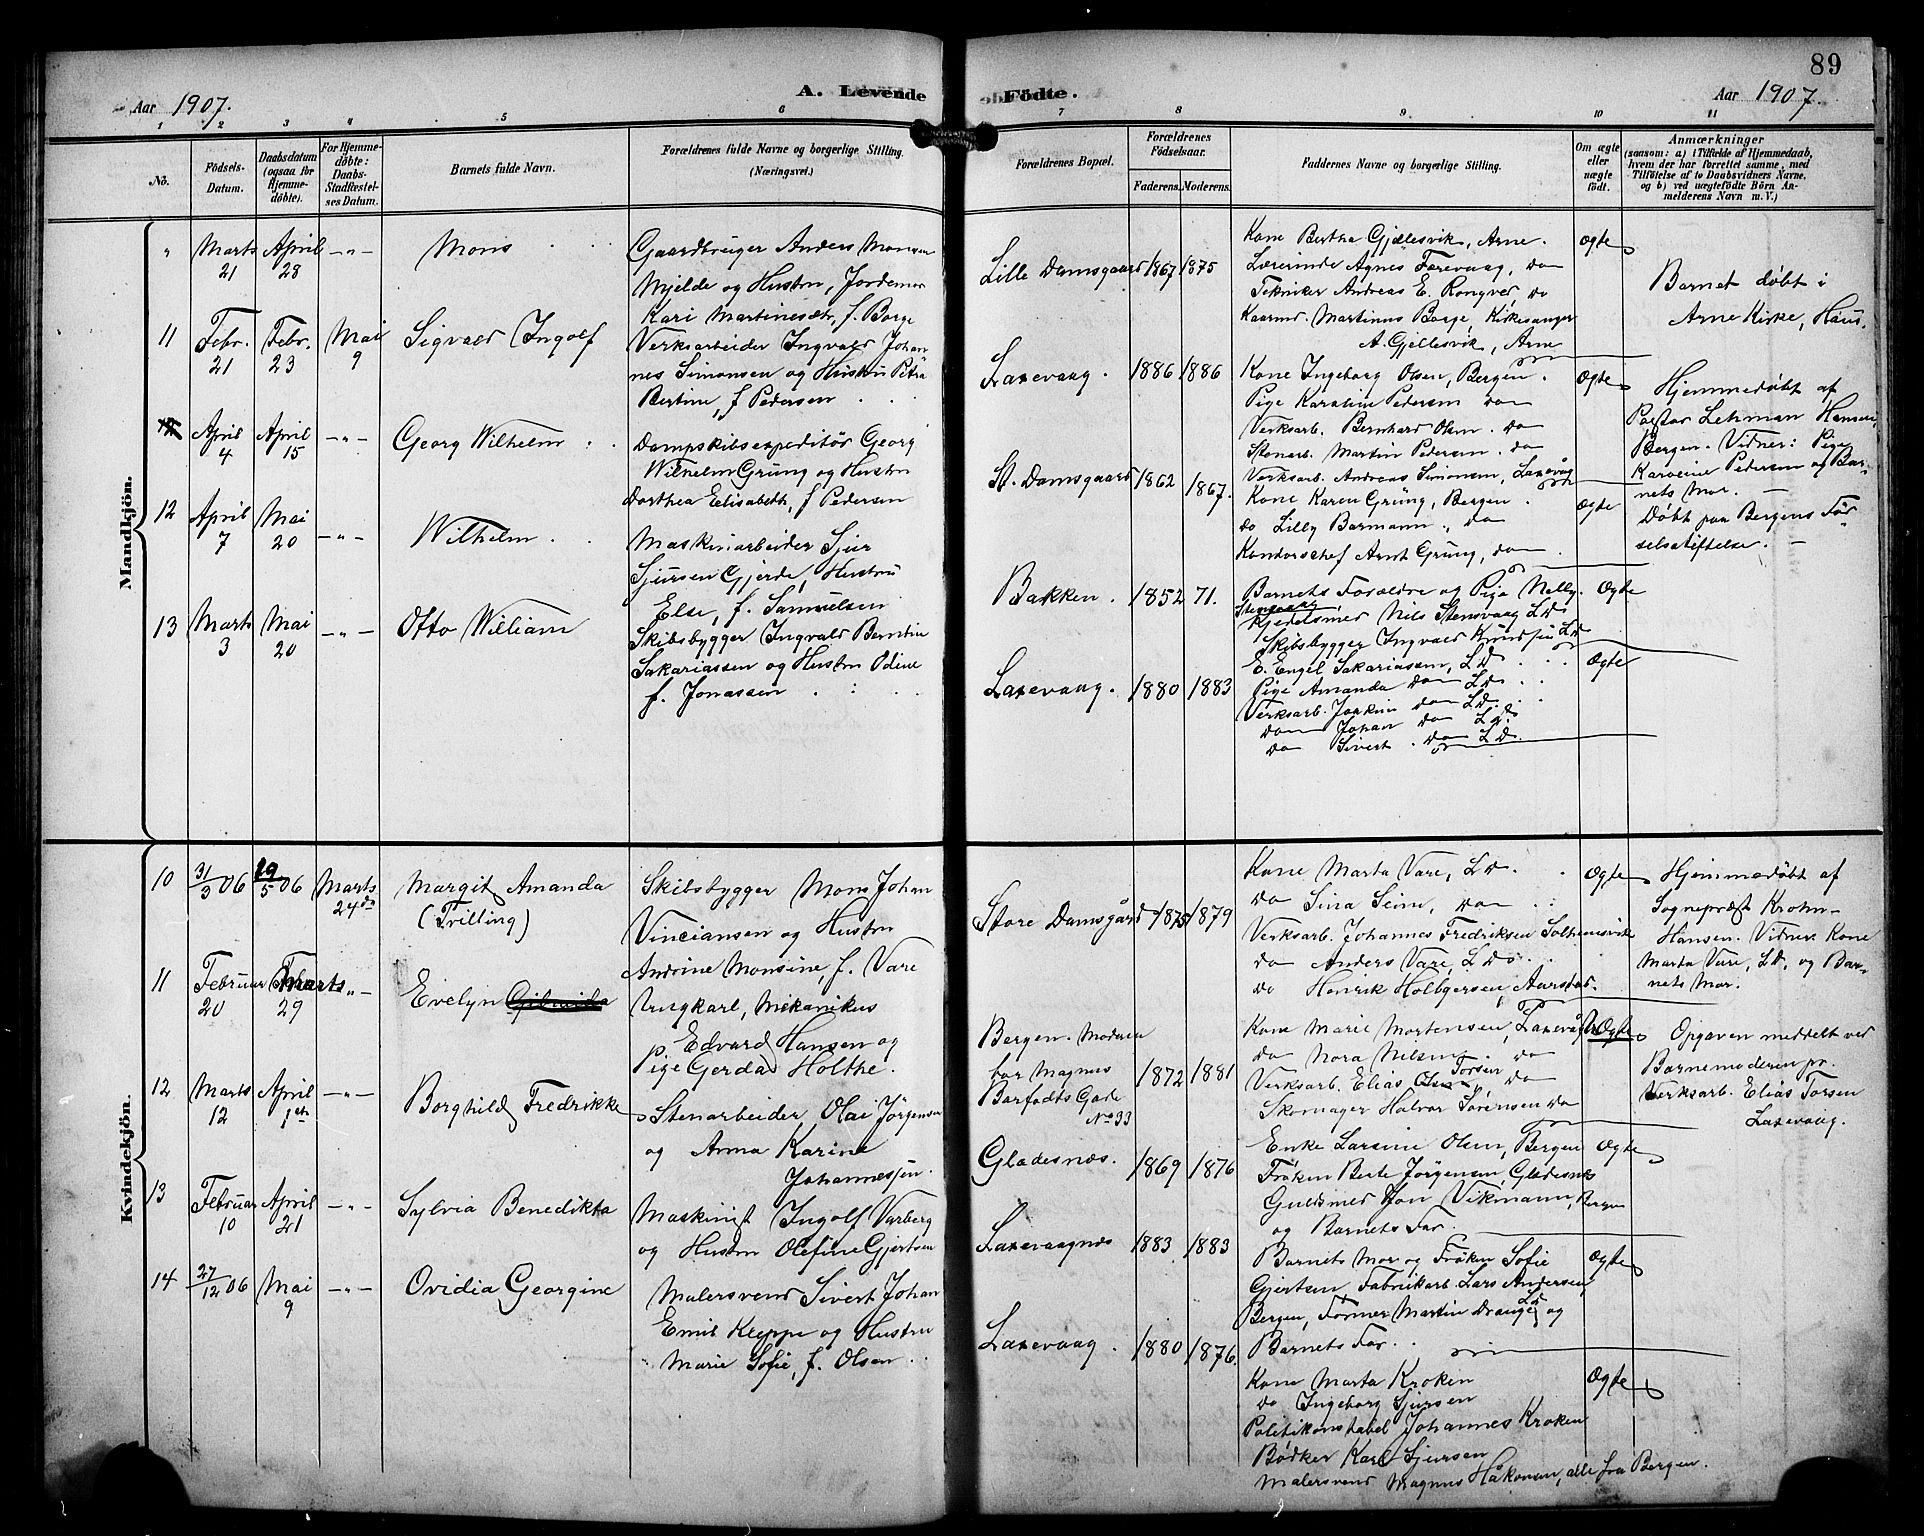 89
Aar 1907.
A. Levende
Födte.
Aar 1907
1 2 3 4 5 6
7 8 9 10 11
No.
Födsels-
Datum.
Daabsdatum
(ogsaa for
Hjemme-
døbte).
For Hjemme-
døbte:
Daabs-
Stadfæstel-
ses Datum.
Barnets fulde Navn.
Forældrenes fulde Navne og borgerlige Stilling.
(Næringsvei.)
Forældrenes Bopæl.
Forældrenes
Födselsaar.
Faderens.
Moderens.
Faddernes Navne og borgerlige Stilling.
Om ægte
eller
uægte
født.
Anmærkninger
(saasom: a) i Tilfælde af Hjemmedaab,
hvem der har forrettet samme, med
Tilföielse af to Daabsvidners Navne,
og b) ved uægtefödte Börn An-
melderens Navn m. V.)
Mandkjön.
" Marts 21 April 28 - " - Mons
Gaardbruger Anders Monsen
Mjelde og Hustru, Jordemor
Kari Martinesdtr, f. Borge
Lille Damsgaard 1867 1875
Kone Bertha Gjellesvik, Arne.
Lærerinde Agnes Farevaag, do
Tekniker Andreas E. Rongved, do
Kaarmd. Martinus Borge, Kirkesanger
A. Gjellesvik, Arne
Ægte
Barnet døbt i
Arne Kirke, Haus.
11 Febr. 21 Febr. 23 Mai 9 Sigvald Ingolf
Verksarbeider Ingvald Johan
nes Simonsen og Hustru Petra
Bertine, f Pedersen
Laxevaag. 1886 1886
Kone Ingeborg Olsen, Bergen.
Pige Karoline Pedersen do
Verksarb. Bernhard Olsen. do
Stenarb. Martin Pedersen. do
Verksarb. Andreas Simonsen, Laxevåg
Ægte
Hjemmedøbt af
Pastor Lehman Hansen,
Bergen. Vidner: Pige
Karoline Pedersen og Bar-
nets Mor. -
April 4 April 15 - " - Georg Wilhelm
Dampskibsexpeditør Georg
Wilhelm Grüng og Hustru
Dorthea Elisabeth, f Pedersen
St. Damsgaard 1862 1867.
Kone Karen Grüng, Bergen.
do Lilly Barmann. do
Kontorschef Arnt Grung, do
Ægte
Døbt paa Bergens Fød
selsstiftelse. -
12 April 7 Mai 20 - " - Wilhelm
Maskinarbeider Sjur
Sjursen Gjerde, Hustru
Else, f. Samuelsen
Bakken. 1852 71.
Barnets Forældre og Pige Nelly
Stensvaag
Kjedelsmed Nils Stensvaag LD.
Skibsbygger Ingvald Knudsen LD
Ægte
13 Marts 3 Mai 20 - " - Otto William
Skibsbygger Ingvald Berntin
Sakariassen og Hustru Odine
f. Jonassen
Laxevaag. 1880 1883
E. Engel Sakariassen, LD.
Pige Amanda do LD.
Verksarb. Joakim do LD.
do Johan do LD.
do Sivert. do LD.
Ægte
Kvindekjön.
10 31/3 06 19/5 06 Marts 24de Margit Amanda
(Trilling)
Skibsbygger Mons Johan
Vinciansen og Hustru
Andrine Monsine, f. Vare
Store Damsgård 1875 1879
Kone Marta Vare, LD.
do Sina Seim, do
Verksarb. Johannes Fredriksen Solheimsvik
do Anders Vare, LD.
do Henrik Holbgersen, Aarstad.
Ægte
Hjemmedøbt af
Sogneprest Krohn-
Hansen. Vidner: Kone
Marta Vare, LD, og Bar-
nets Mor.
11 Februar 20 Marts 29 - " - Evelyn
Ungkarl, Mekanikus
Edvard Hansen og
Pige Gerda Holthe.
Bergen. Moderen
bor Magnus
Barfodts Gade
No 33
1872 1881
Kone Marie Mortensen, Laxevåg
do Nora Nilsen. do
Verksarb. Elias Torsen, do
Skomager Halvor Sørensen do
U Ægte
Opgaven meddelt ved
Barnemoderen pr
Verksarb. Elias Torsen
Laxevaag.
12 Marts 12 April 1ste - " - Borghild Fredrikke
Stenarbeider, Olai Jørgensen
og Anna Karine
Johannessen.
Gladesnæs. 1869 1876
Enke Larsine Olsen, Bergen
Frøken Berte Jörgensen, Gladesnæs
Guldsmed Jon Vikmann, Bergen
og Barnets Far.
Ægte
13 Februar 10 April 21 - " - Sylvia Benedikta
Maskinist Ingolf Varberg
og Hustru Olefine Gjertsen
Laxevaagnes 1883 1883
Barnets Mor og Frøken Sofie
Gjertsen Fabrikarb. Lars Andersen,
Bergen, Former Martin Drange LD og
Barnets Far.
Ægte
14 27/12 06 Mai 9 - " - Ovidia Georgine
Malersvend Sivert Johan
Emil Kleppe og Hustru
Marie Sofie, f. Olsen
Laxevaag 1880 1876.
Kone Marta Kroken
do Ingeborg Sjursen
Politikonstabel Johannes Kroken
Bødker Karl Sjursen
Malersvend Magnus Håkonsen, alle fra Bergen.
Ægte